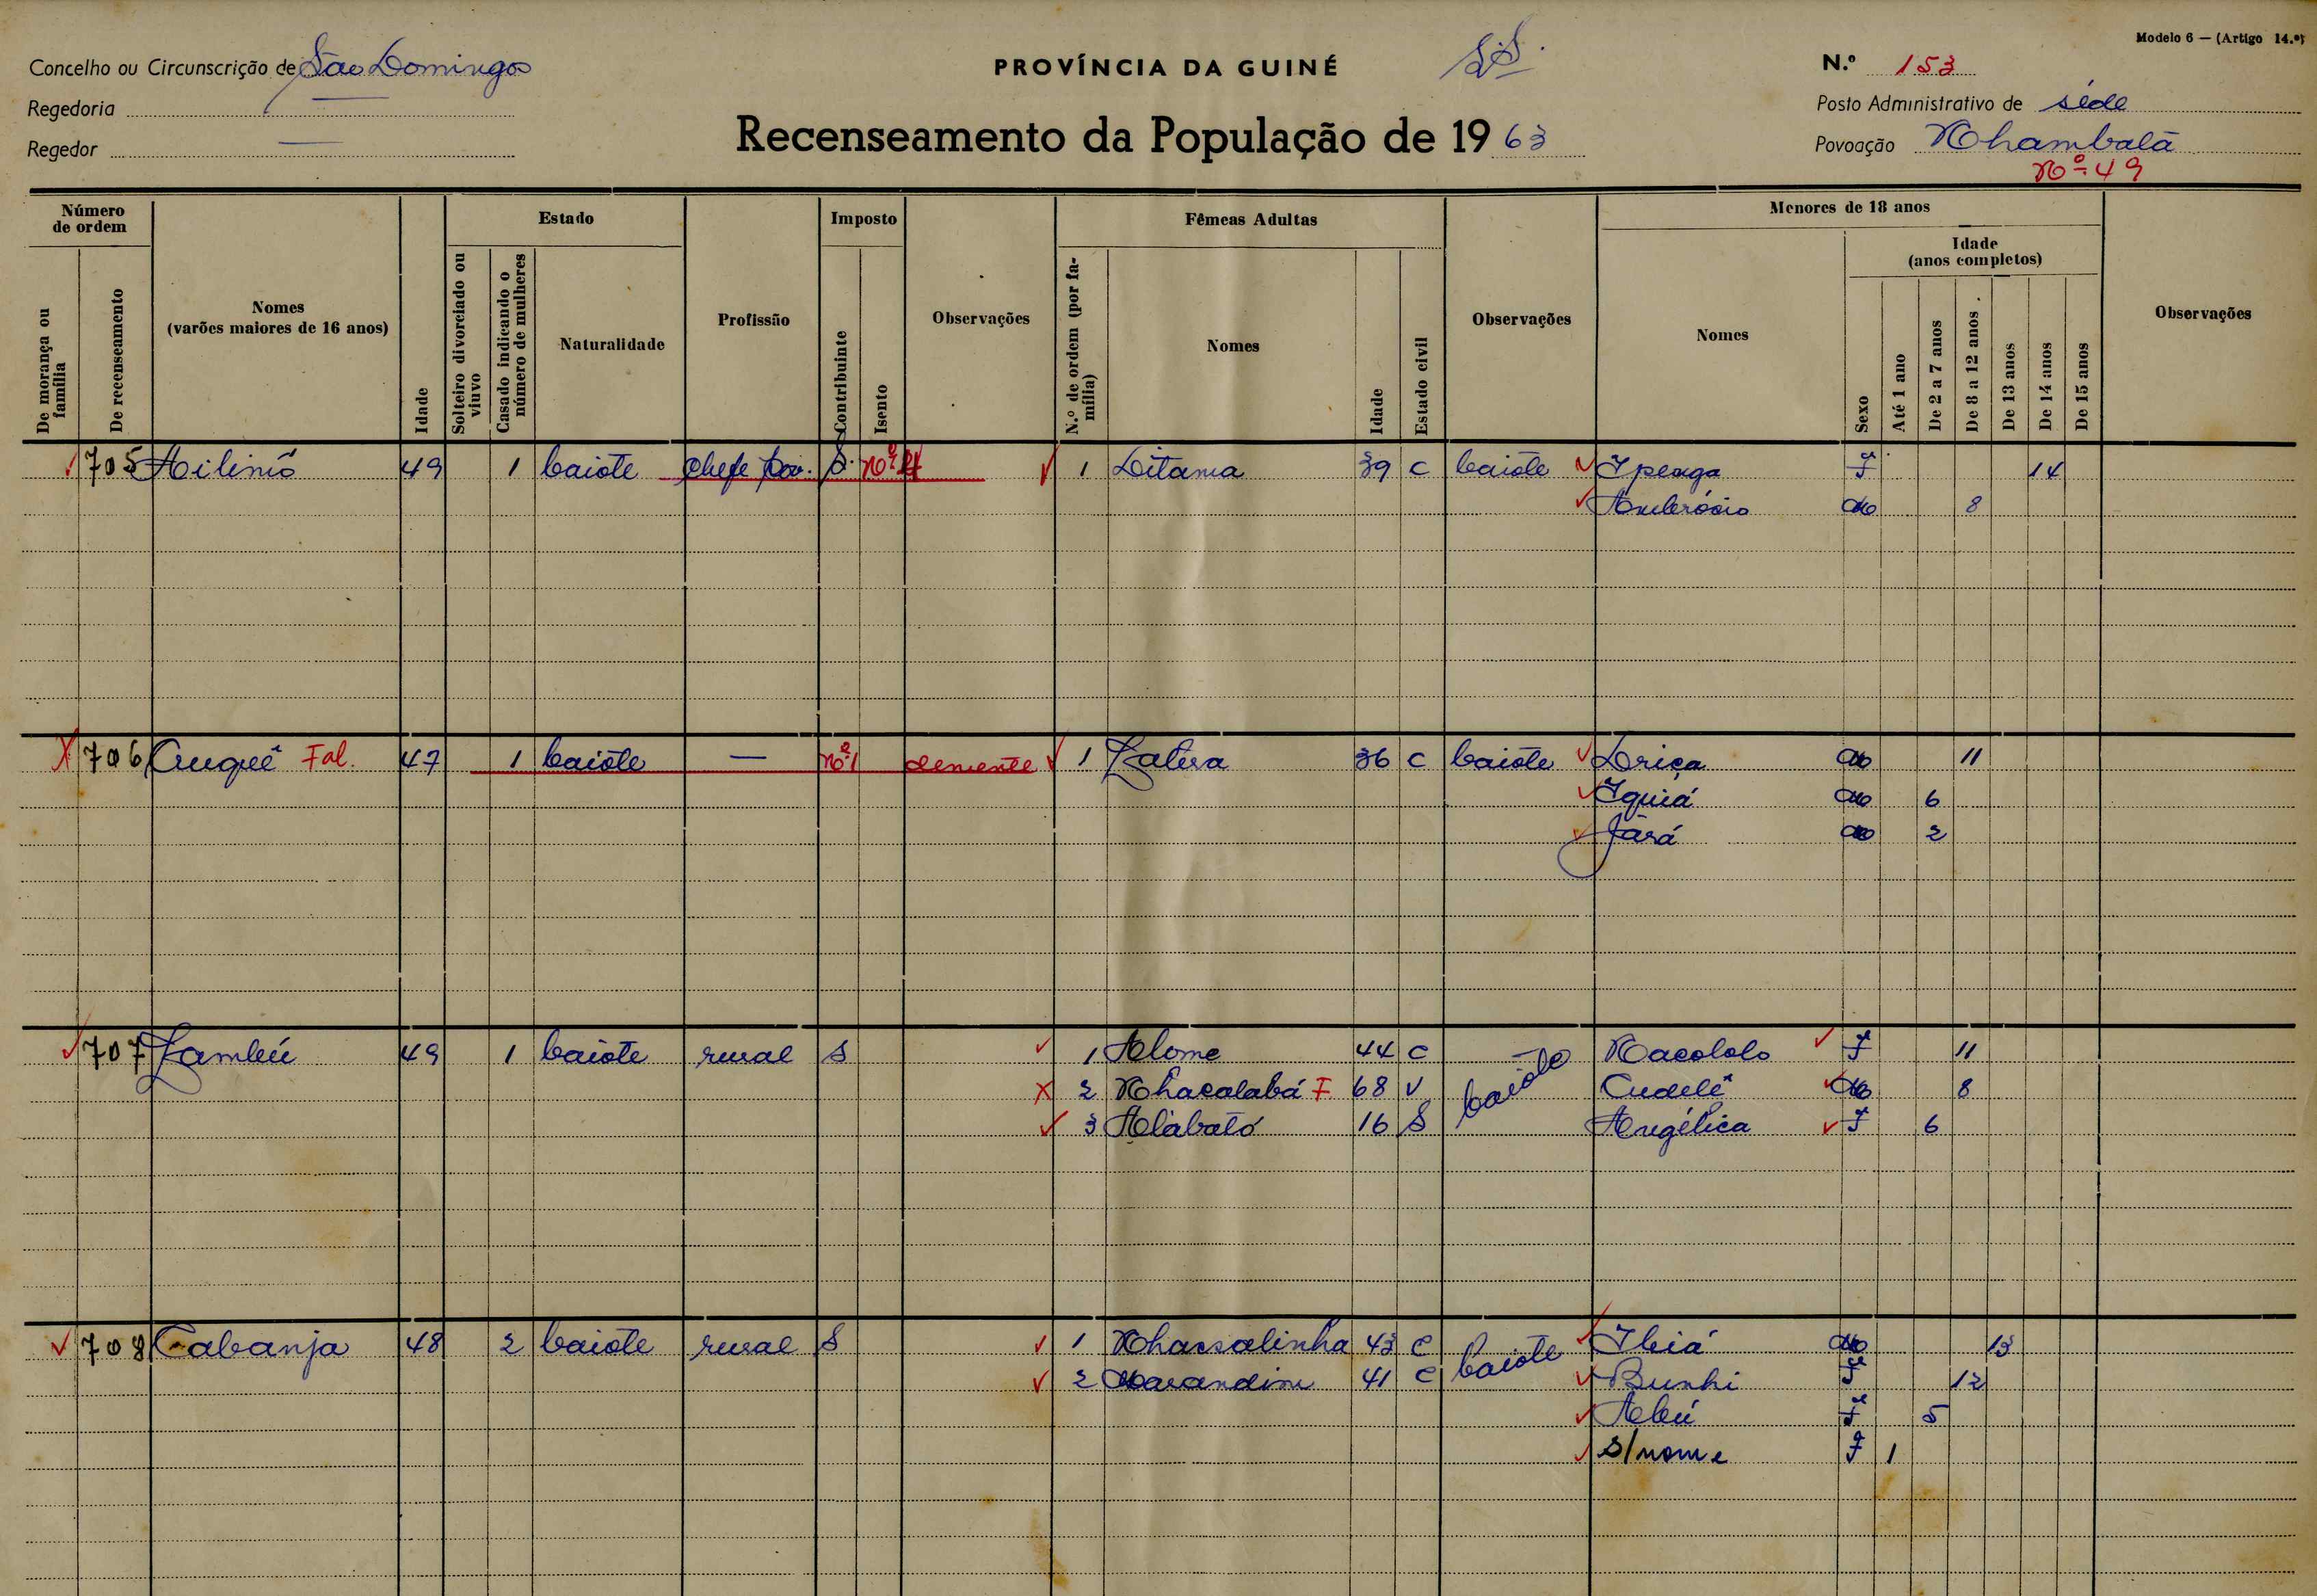 Modelo 6 — (Artigo 14.º)
Concelho ou Circunscrição de São Domingos
PROVÍNCIA DA GUINÉ
N.º 153
Regedoria —
Posto Administrativo de séde
Regedor —
Recenseamento da População de 1963
Povoação Nhambalã
Nº 49
Número de ordem
Estado
Imposto
Fêmeas Adultas
Menores de 18 anos
De morança ou família
De recenseamento
Nomes (varões maiores de 16 anos)
Idade
Solteiro divorciado ou viuvo
Casado indicando o número de mulheres
Naturalidade
Profissão
Contribuinte
Isento
Observações
N.º de ordem (por família)
Nomes
Idade
Estado civil
Observações
Nomes
Sexo
Idade (anos completos)
Até 1 ano
De 2 a 7 anos
De 8 a 12 anos
De 13 anos
De 14 anos
De 15 anos
Observações
705 Ailinió 49 1 baiote chefe pov. S. nº 4 1 Litama 39 c baiote Ipenga F 14
Ambrósio M 8
706 Cuquê Fal. 47 1 baiote — nº 1 demente 1 Zalera 36 c baiote Driça M 11
Iquiá M 6
Jará M 2
707 Zambú 49 1 baiote rural S 1 Alome 44 c baiote Nacololo F 11
2 Nhacalabá F 68 V Cudelê M 8
3 Alabató 16 S Angélica F 6
708 Cabanja 48 2 baiote rural S 1 Nhassalinha 43 c baiote Ibiá M 13
2 Marandim 41 c Bunhi F 12
Abú F 5
S/nome F 1